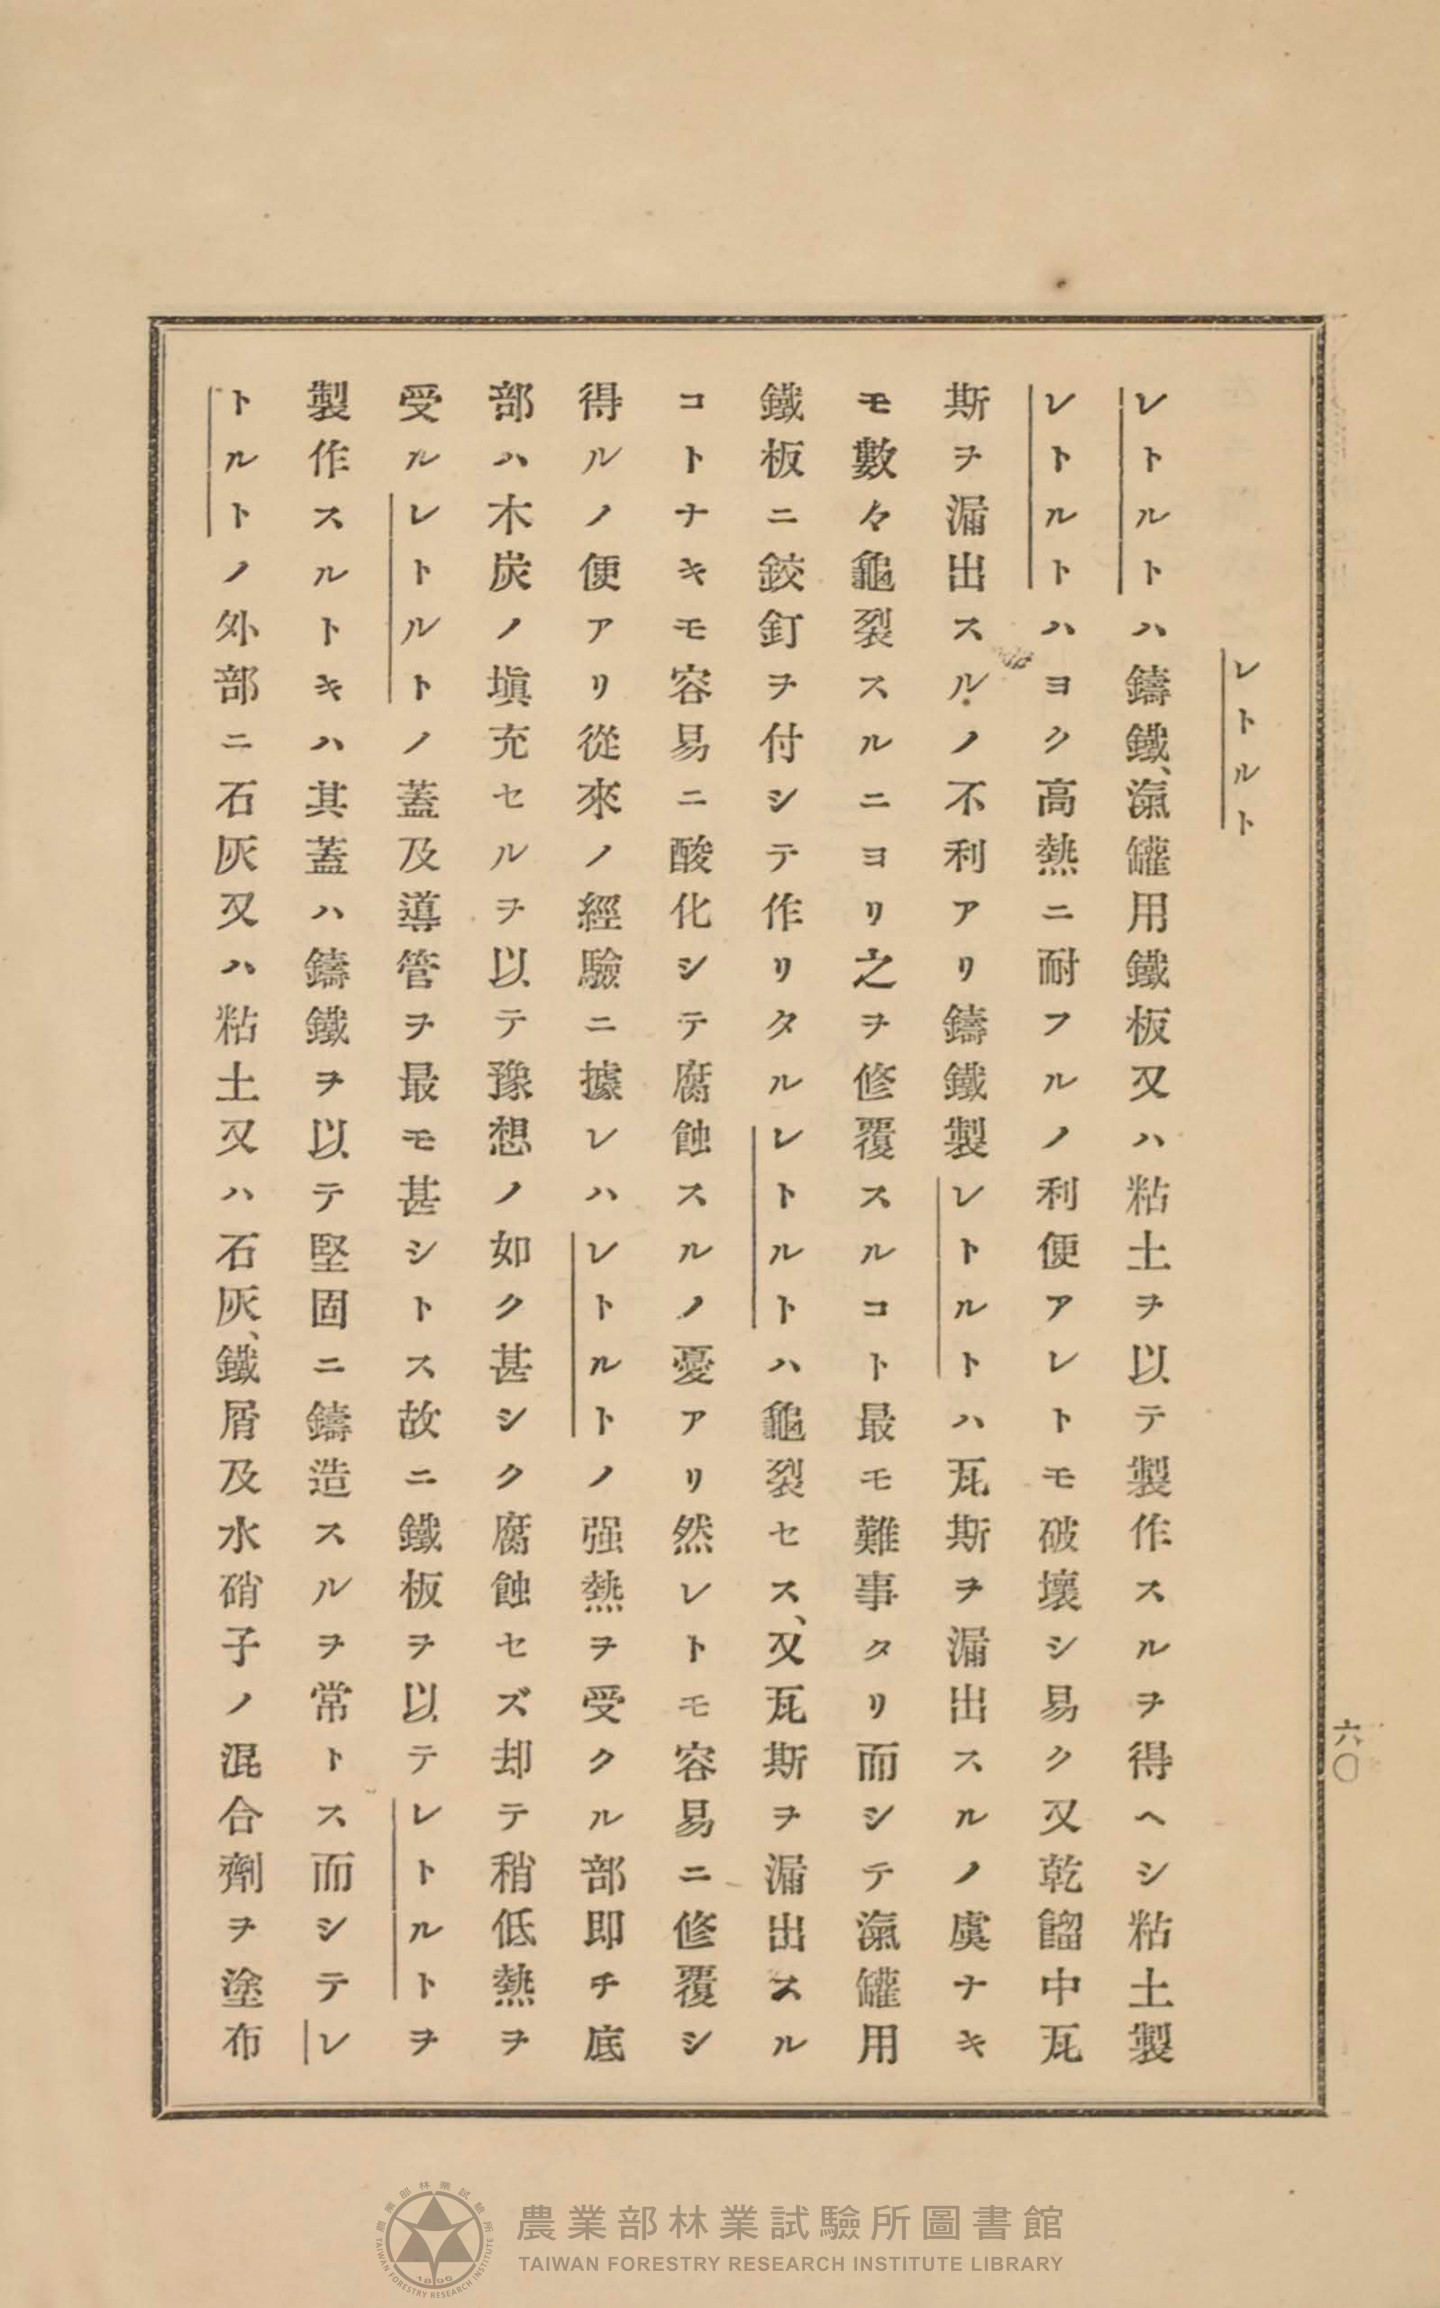 六〇
レトルト
レトルトハ鑄鐵、滊罐用鐵板又ハ粘土ヲ以テ製作スルヲ得ヘシ粘土製
レトルトハヨク高熱ニ耐フルノ利便アレトモ破壞シ易ク又乾餾中瓦
斯ヲ漏出スルノ不利アリ鑄鐵製レトルトハ瓦斯ヲ漏出スルノ虞ナキ
モ數々龜裂スルニヨリ之ヲ修覆スルコト最モ難事タリ而シテ滊罐用
鐵板ニ鉸釘ヲ付シテ作リタルレトルトハ龜裂セス、又瓦斯ヲ漏出スル
コトナキモ容易ニ酸化シテ腐蝕スルノ憂アリ然レトモ容易ニ修覆シ
得ルノ便アリ從來ノ經驗ニ據レハレトルトノ强熱ヲ受クル部即チ底
部ハ木炭ノ塡充セルヲ以テ豫想ノ如ク甚シク腐蝕セズ却テ稍低熱ヲ
受ルレトルトノ蓋及導管ヲ最モ甚シトス故ニ鐵板ヲ以テレトルトヲ
製作スルトキハ其蓋ハ鑄鐵ヲ以テ堅固ニ鑄造スルヲ常トス而シテレ
トルトノ外部ニ石灰又ハ粘土又ハ石灰、鐵屑及水硝子ノ混合劑ヲ塗布
農業部林業試驗所圖書館
TAIWAN FORESTRY RESEARCH INSTITUTE LIBRARY
農業部林業試驗所
TAIWAN FORESTRY RESEARCH INSTITUTE
1896